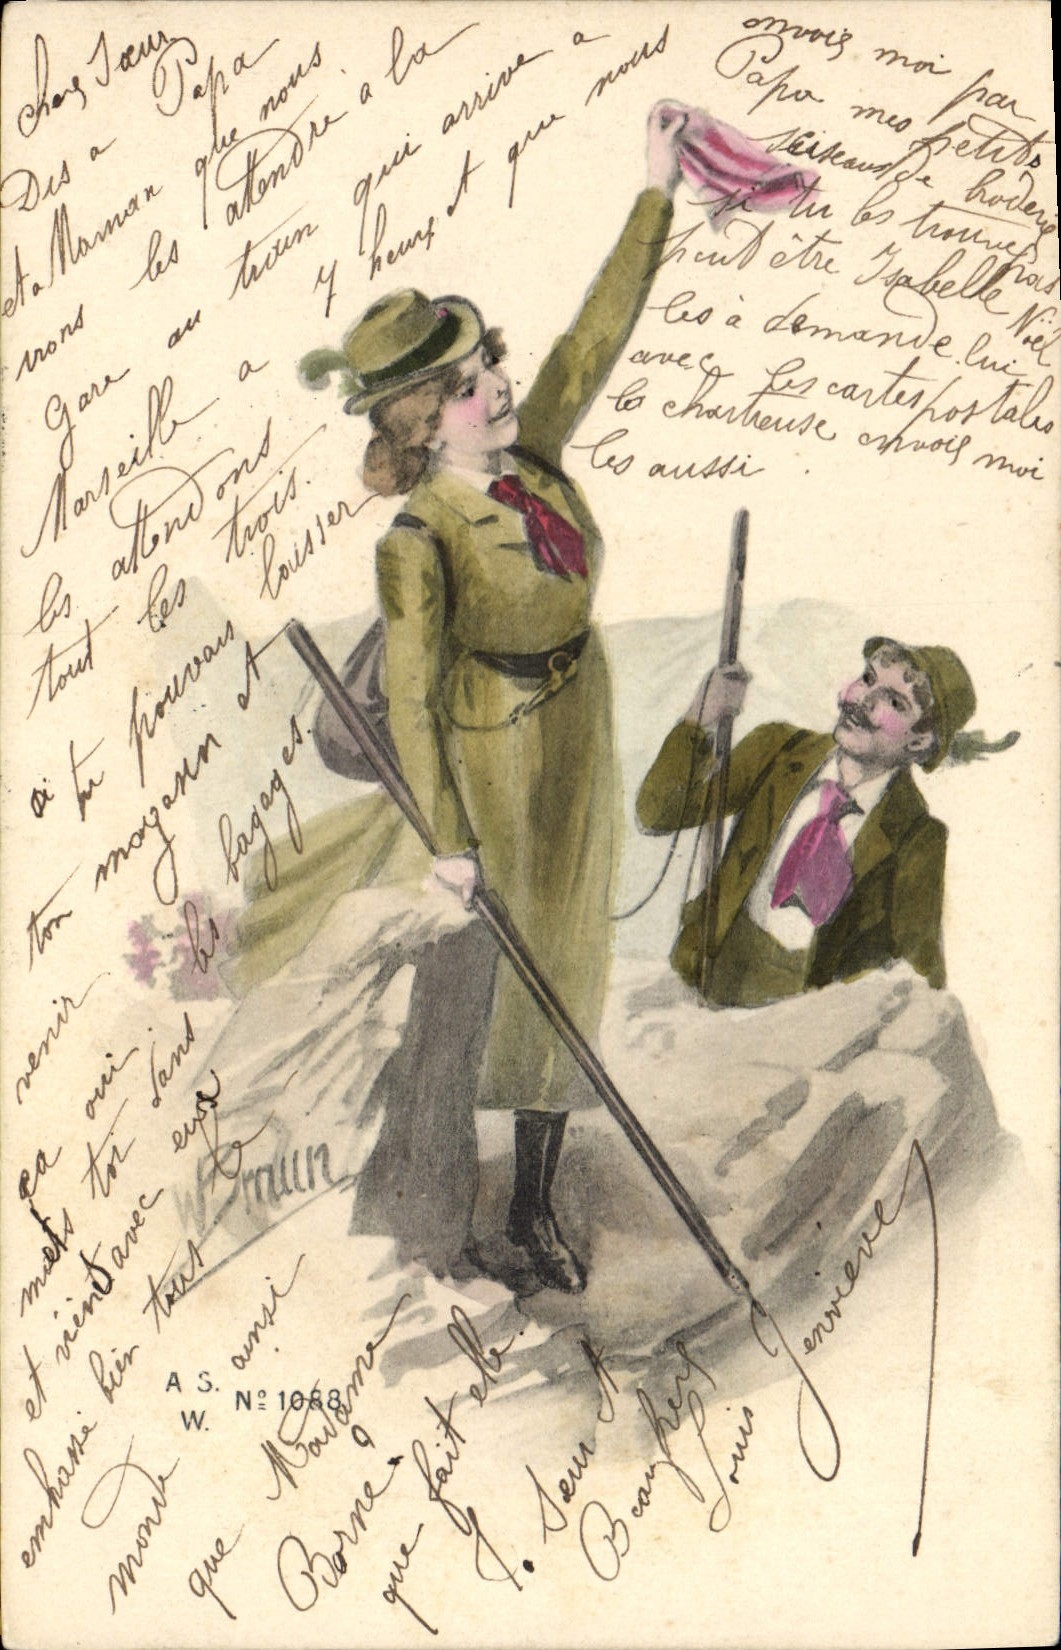 chere Sœur
Dis a Papa
et a Maman que nous
irons les attendre a la
Gare au train qui arrive a
Marseille a 7 heures et que nous
les attendons
tout les trois.
si tu pouvais laisser
ton magasin et
venir
ça oui
mets toi dans les bagages.
et vient avec eux
embrasse bien tous le
monde ainsi
que Madame
Borne.
que fait elle?
Ta Sœur et
Beau frere
Louis
Jenvieve
envois moi par
Papa mes petits
ciseaux de broderie
si tu les trouve pas
peut être Isabelle Nöel
les à demande lui
avec les cartes postales
la chartreuse envois moi
les aussi.
A S.
W. Nº 1088